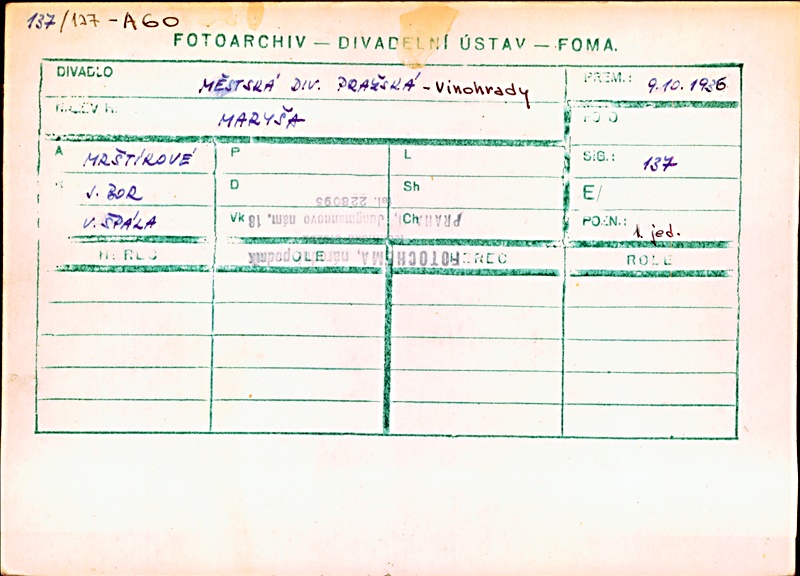 137/127-A60
FOTOARCHIV — DIVADELNÍ ÚSTAV — FOMA.
DIVADLO MĚSTSKÁ DIV. PRAŽSKÁ - Vinohrady PREM.: 9.10.1936
NÁZEV H. MARYŠA FOTO
A MRŠTÍKOVÉ P L SIG.: 137
R J. BOR D Sh E/
V. ŠPÁLA Vk Ch POZN.: 1. jed.
HEREC ROLE HEREC ROLE
FOTOCHEMA, národ. podnik
PRAHA II, Jungmannovo nám. 18
tel. 228095